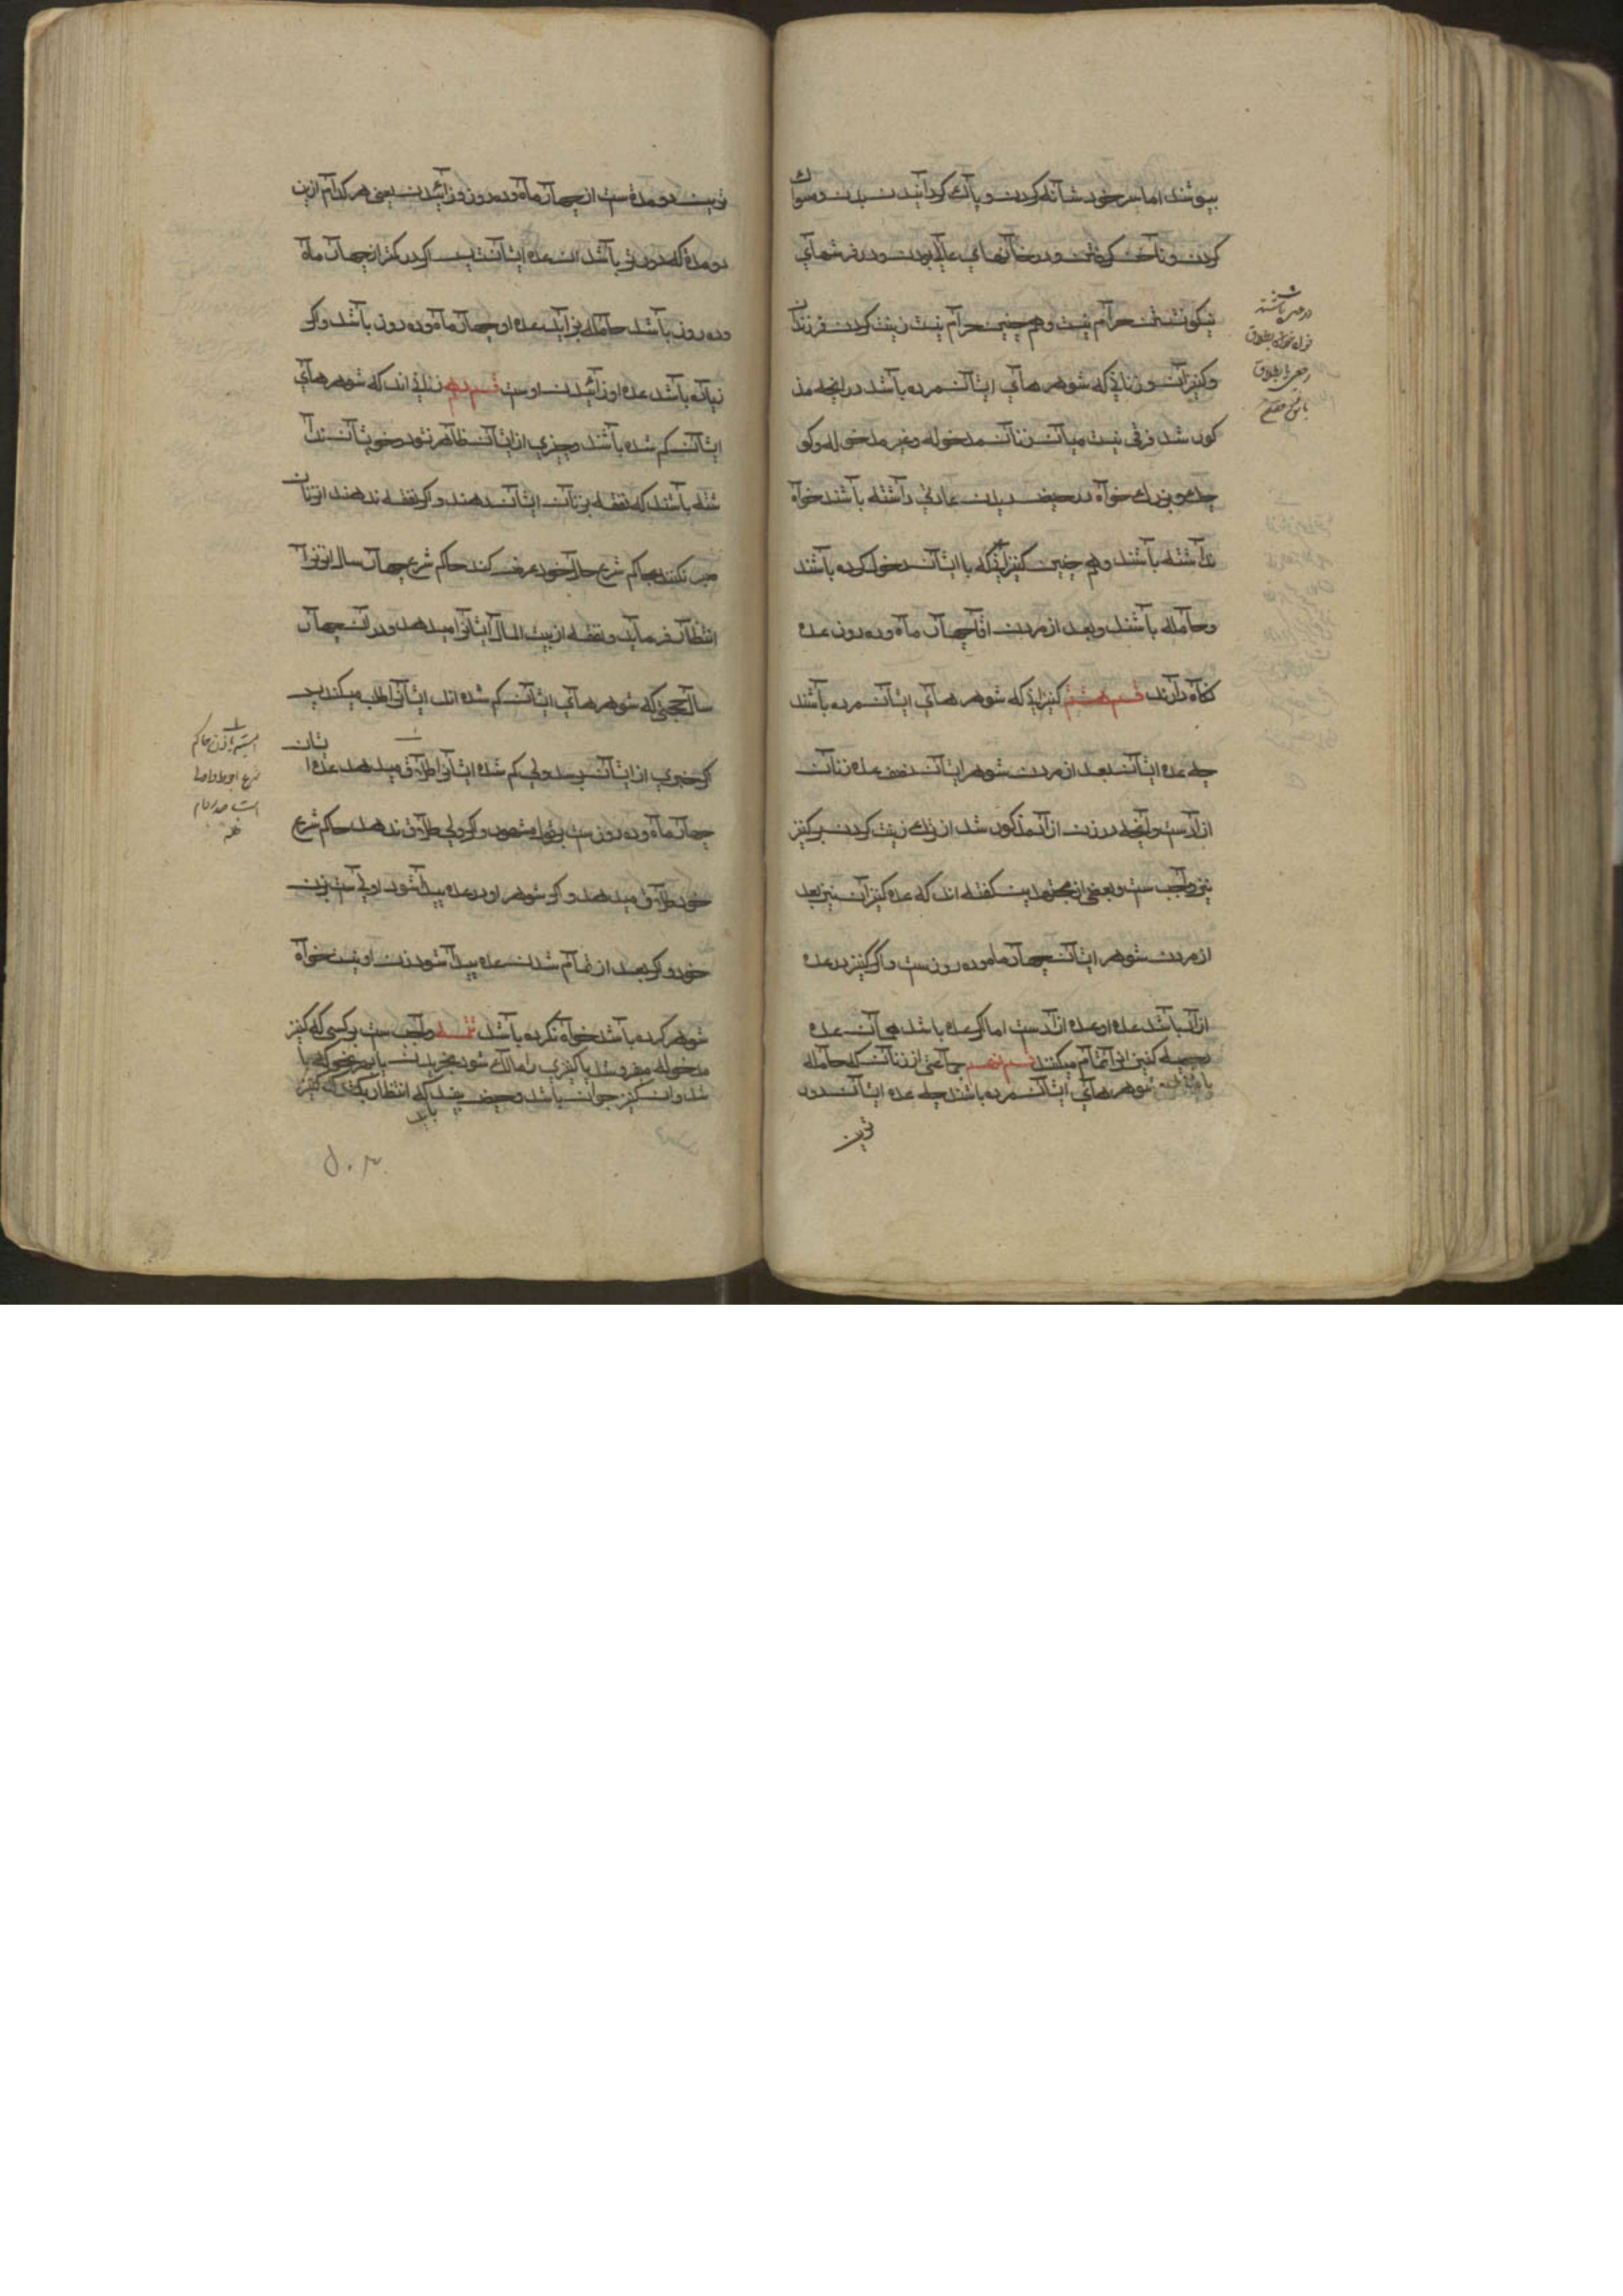 بپوشند اما سر خود شانه کردن و پاک کردانیدن بدن و مسواک
کردن و ناخن کرفتن و در خانهای عالی بودن و در فرشهای
نیکو نشستن حرام نیست و هم چنین حرام نیست زینت کردن فرزندان
و کنیزان و زنانی که شوهر های ایشان مرده باشد در انچه مذ
کور شد فرقی نیست میان زنان مدخوله و غیر مدخوله و کو
چک و بزرک خواه در حیض دیدن عادتی داشته باشند خواه
نداشته باشند و هم چنین کنیزانی که با ایشان دخول کرده باشند
و حامله باشند و بعد از مردن اقا چهار ماه و ده روز عده
نکاه دارند قسم هشتم کنیزانی که شوهر های ایشان مرده باشند
چه عده ایشان بعد از مردن شوهر ایشان نصف عده زنان
ازادست و انچه در زن ازاد مذکور شد از ترک زینت کردن بر کنیز
نیز واجب ست و بعضی از مجتهدین کفته اند که عده کنیزان نیز بعد
از مردن شوهر ایشان چهار ماه و ده روز ست و اکر کنیز در عده
ازاد باشد عده او عده ازادست اما اکر عده باشد همان عده
کنیز را تمام میکنند قسم نهم جماعتی از زنان که حامله
باشند و شوهر های ایشان مرده باشند چه عده ایشان دور
ترین
در عده باشند
ترین دو مدة ست از چهار ماه و ده روز و زائیدن یعنی هر کدام ازین
دو مدة که دورتر باشد ان عده ایشانست پس اکر در کمتر از چهار ماه
و ده روز باشد حامله بزاید عده او چهار ماه و ده روز باشد و اکر
زیاده باشد عده او زائیدن اوست قسم دهم زنانی اند که شوهر های
ایشان کم شده باشند و چیزی از ایشان ظاهر نشود و خویشان ندا
شته باشند که نفقه بزنان ایشان دهند و اکر نفقه ندهند ان زنان
صبر نکنند بحاکم شرع حال خود عرض کند حاکم شرع چهار سال ان زنرا
انتظار فرماید و نفقه از بیت المال ایشانرا میدهد و در ان چهار
سال بجهتی که شوهر های ایشان کم شده اند ایشانرا طلب میکند پس
اکر خبری از ایشان نرسد ولی کم شده ایشانرا طلاق میدهد عده ایشان
چهار ماه و ده روز ست بقول مشهور و اکر ولی طلاق ندهد حاکم شرع
خود طلاق میدهد و اکر شوهر او در عده پیدا شود اولی ست بزن
خود و اکر بعد از تمام شدن عده پیدا شود زن او نیست خواه
شوهر کرده باشد خواه نکرده باشد تتمه واجب ست بر کسی که کنیز
مدخوله بفروشد یا کنیزی را مالک شود بخریدن یا بغیر نحوی که با
شد و ان کنیز جوان باشد و حیض بیند که انتظار بکشد که کنیز
باید